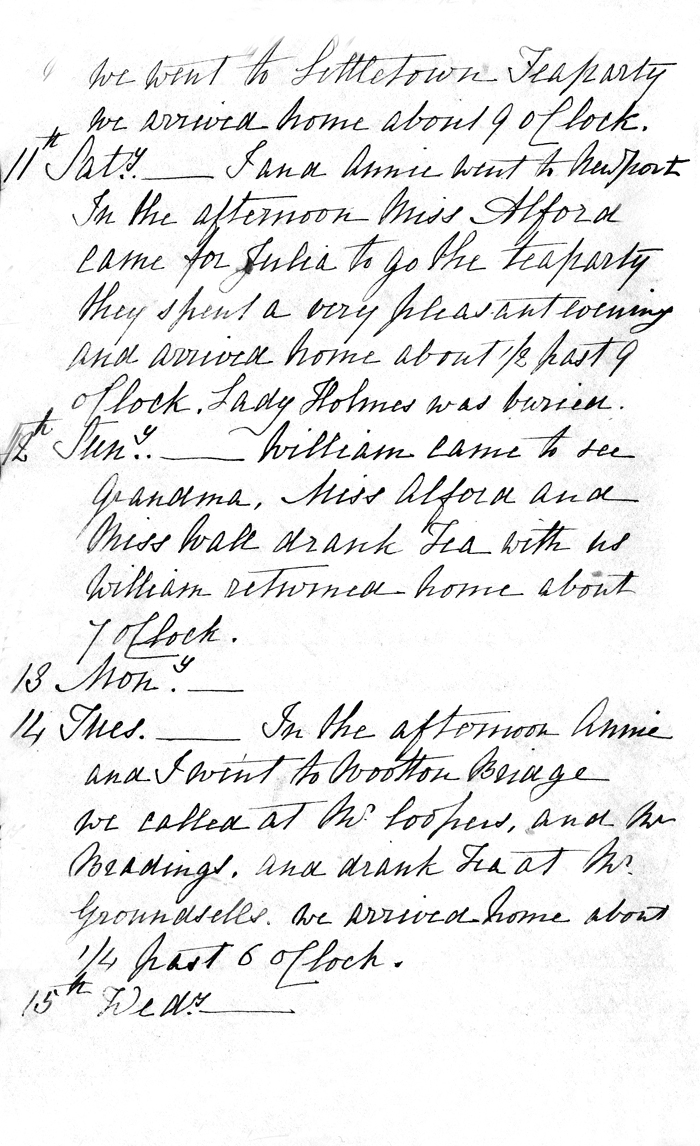 we went to Littletown Teaparty
we arrived home about 9 oClock.
11th Saty. — I and Annie went to Newport
In the afternoon Miss Alford
came for Julia to go the teaparty
they spent a very pleasant evening
and arrived home about 1/2 past 9
oClock. Lady Holmes was buried.
12th Suny. — William came to see
Grandma, Miss Alford and
Miss Wall drank Tea with us
William returned home about
7 oClock.
13 Mony. —
14 Tues. — In the afternoon Annie
and I went to Wootton Bridge
we called at Mr Coopers, and Mr
Bradings. and drank Tea at Mr.
Groundsells. we arrived home about
1/4 past 6 oClock.
15th Wedy —